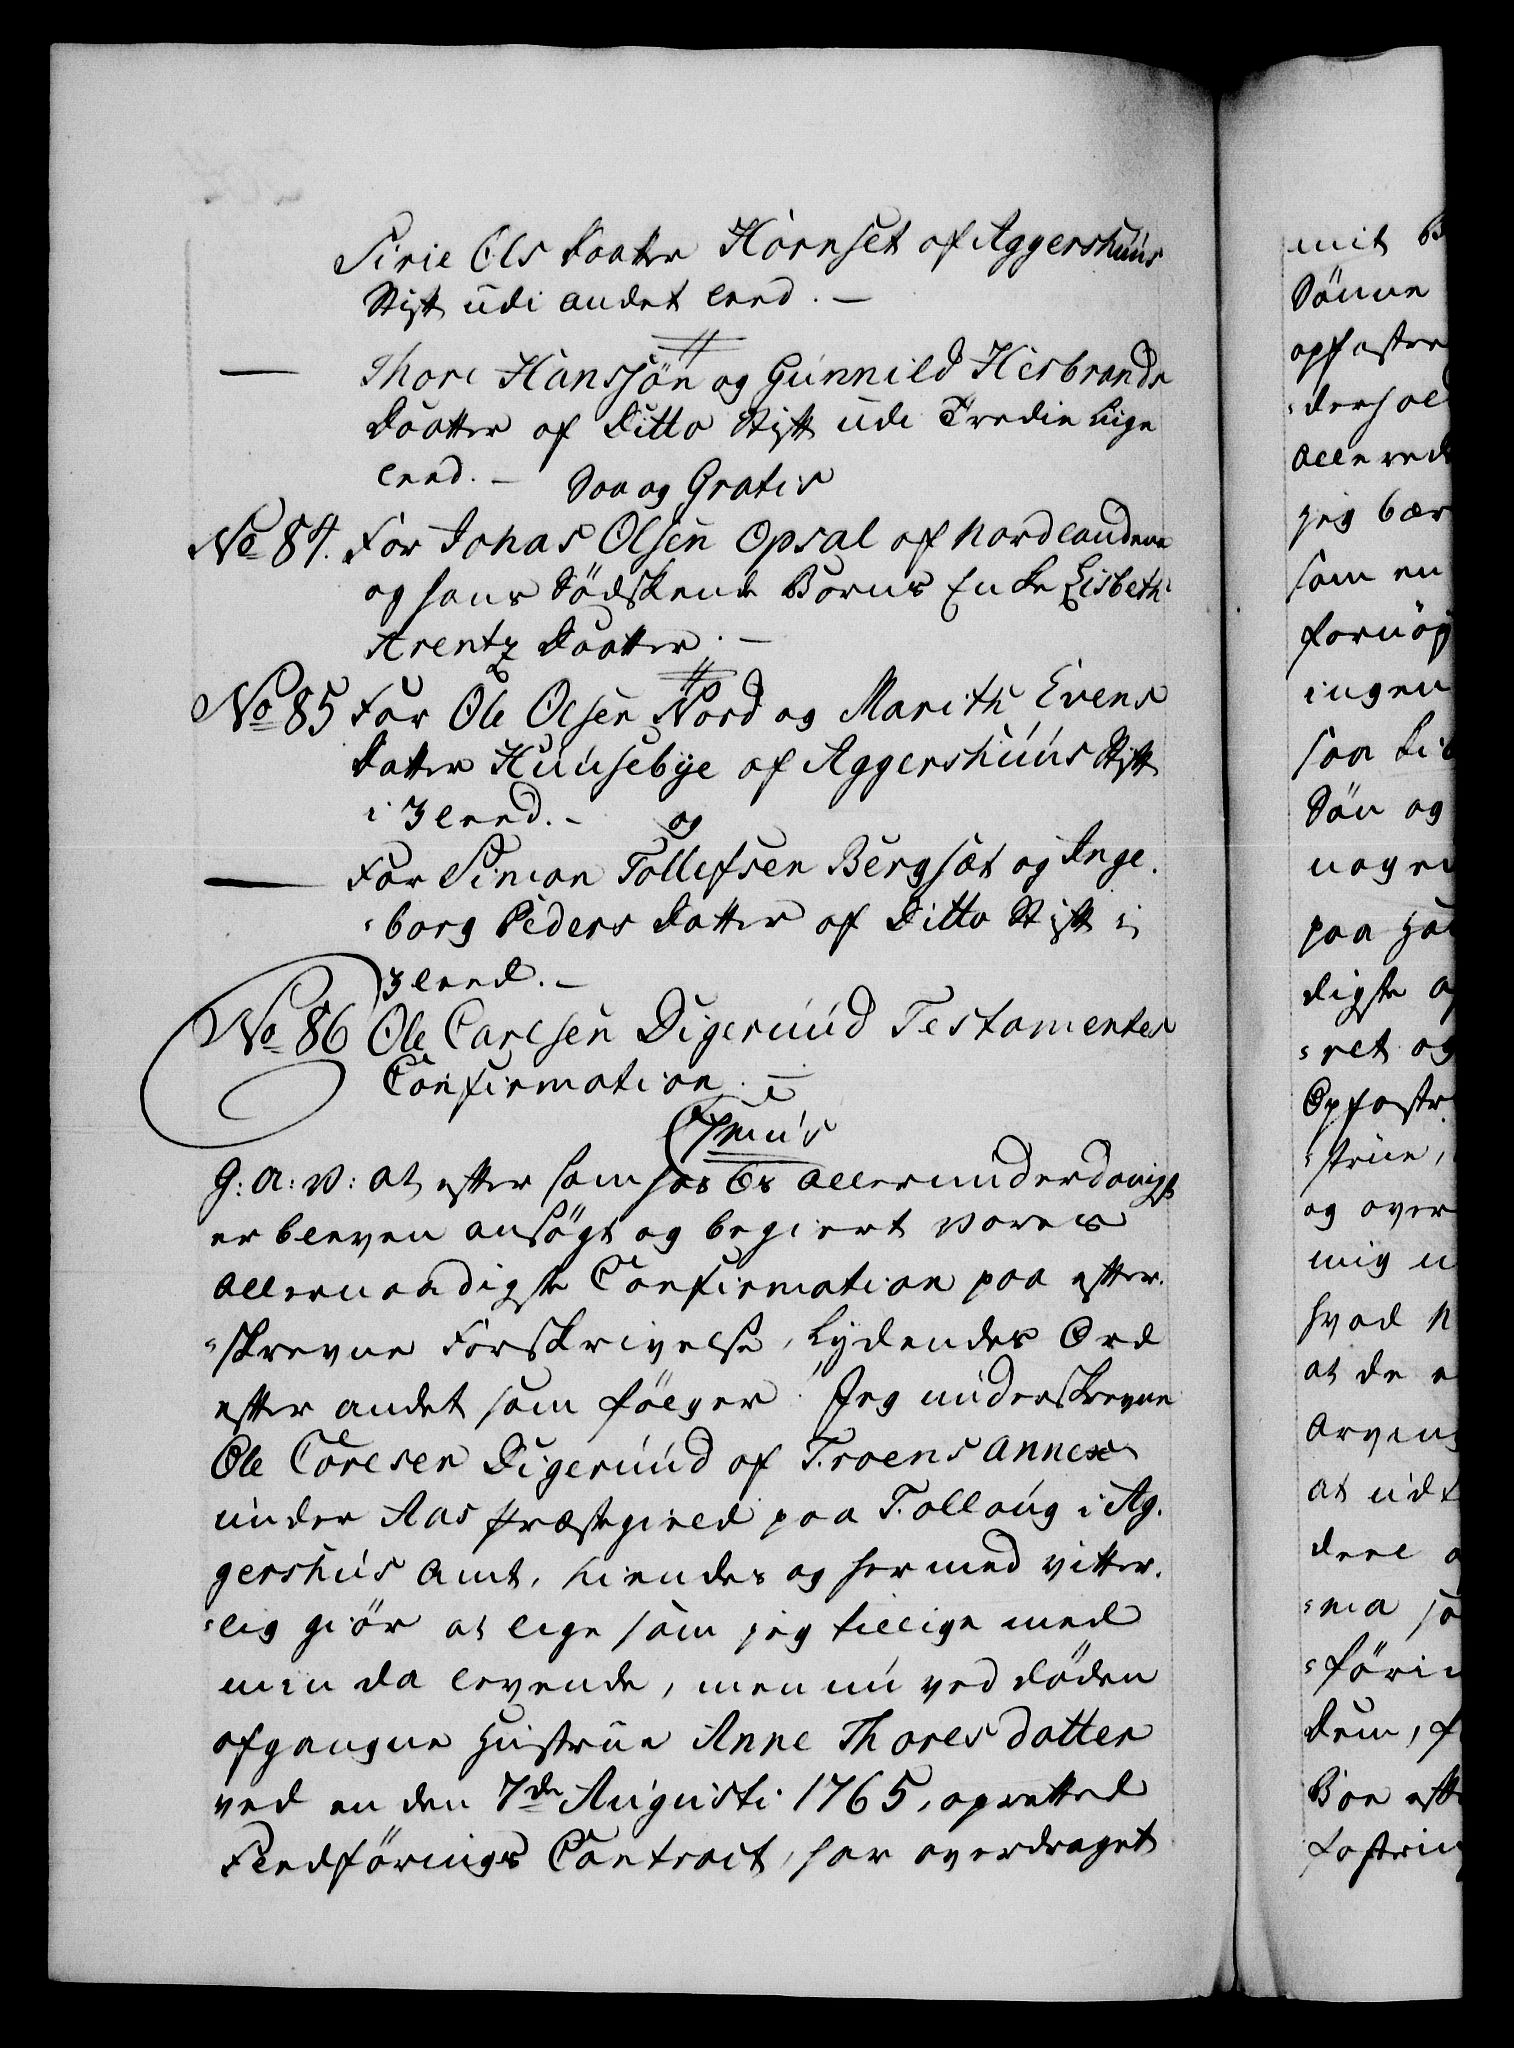 Sirie Ols Daatter Hornset af Aggershuus
Stift udi andet Leed. —
— Thore Hanssön og Gunnild Hesbrands
Daatter af Ditto Stift udi Tredie Liige
Leed. — Saa og Gratis
No 84. For Johas Olsen Opsal af Nordlandene
og hans Södskende Barns Enke Lisbeth
Arentz Daatter. —
No 85 For Ole Olsen Nord og Marith Evens
Datter Huusebye af Aggershuus Stift
i 3 Leed. — og
— For Simon Tollefsen Bergsæt og Inge-
borg Peders Datter af Ditto Stift i
3 Leed. —
No 86 Ole Carlsen Digerud Testamentes
Confirmation. —
G: A: V: at eftersom hos Os allerunderdanigst
er bleven ansögt og begiert Vores
allernaadigste Confirmation paa efter-
skrevne Forskrivelse, Lydendes Ord
efter andet som fölger. Jeg underskrevne
Ole Carlsen Digerud af Kroens annex
under Aas Præstegield paa Follaug i Ag-
gershus Amt, kiendes og hermed vitter-
lig giör at lige som jeg tillige med
min da levende, men nu ved döden
afgangne Hustrue Anne Thoresdatter
ved en den 7de Augusti 1765, oprettet
Fledförings Contract, har overdraget
mit B
Sönne
opfostre
allerede
jeg bær
som en
fornöy
ingen
saa Li
Sön og
paa
digste
ret og
Opfostr
strue,
og over
mig
hvad
at de
Arving
at ud
deel
ma
föri
dem, f
Boe eft
fostrin